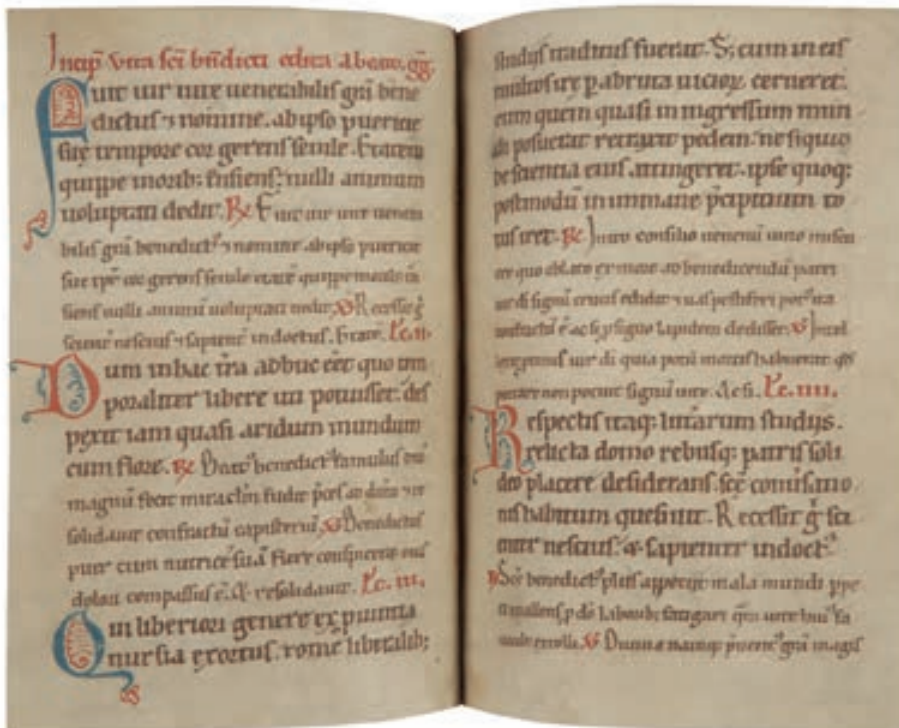 Incip̄ Vita sc̄i bn̄dicti edita a beato. gḡ.
Fuit uir uite uenerabilis gr̄a bene
dictus ⁊ nomine. ab ipso puericie
sue tempore cor gerens senile. Etatem
quippe morib; transiens; nulli animum
uoluptati dedit. R̃ Fuit uir uite uenera
bilis gr̄a benedict᷒ ⁊ nomine ab ipso puericie
sue tp̄re cor gerens senile etatē quippe morib; t̄n
siens nulli animū uoluptati dedit. Ṽ Recessit g̊
scient̄ nescius ⁊ sapient̄ indoctus. Etatē. Lc̄. ii.
Dum in hac tr̄a adhuc eēt quo tem
poraliter libere uti potuisset. des
pexit iam quasi aridum mundum
cum flore. R̃ benedict᷒ famulus
magnū fecit miraclm̄ fudit p̄ces ad dn̄m ⁊ re
solidauit confractū capisteriū. Ṽ Benedictus
puer cum nutricē suā flere conspiceret
dolori compassus ē. Et resolidauit. Lc̄. iii.
Qui liberiori genere ex puintia
nursia exortus. rome liberalib;
studijs traditus fuerat. S; cum in eis
multos ire p abrupta uicioꝝ cerneret.
eum quem quasi in ingressum mun
di posuerat retraxit pedem. ne si quid
de scientia eius attingeret. ipse quoq;
postmodū in immane p̄cipitium to
tus iret. R̃ Inito consilio uenenū uino miscu
ere quo oblato ex more ad benedicendū patri
uir dī signū crucis edidit ⁊ uas pestiferi pot᷒ ita
confractū ē ac si p signo lapidem dedisset. Ṽ Intel
lexit p̄tinus uir dī quia potū mortis habuerat qd̄
portare non potuit signū uite. Ac si. Lc̄. iiii.
Respectis itaq; litt̄arum studijs.
relicta domo rebusq; patris soli
deo placere desiderans. sc̄e conu̓satio
nis habitum quesiuit. Recessit g̊ sci
enter nescius. & sapienter indoct᷒.
R̃ Sc̄s benedict᷒ plus appetijt mala mundi ppe
ti mallens. p dō laborib; fatigari qm̄ uite hui᷒ fa
uorib; extolli. Ṽ Diuina nanq; p̄uent᷒ gr̄a magis